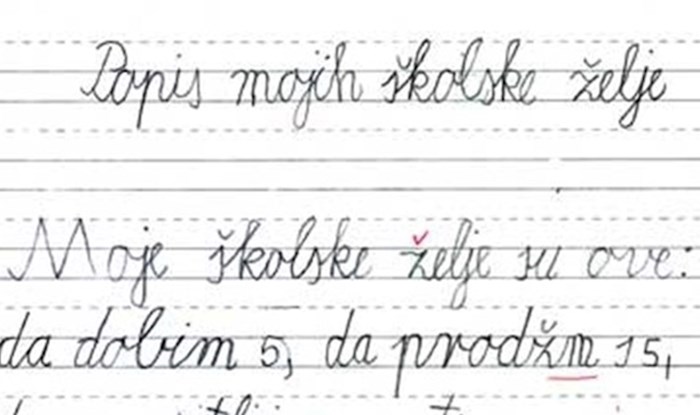 Popis mojih školske želje
Moje školske želje su ove:
da dobim 5, da prodžm 15,